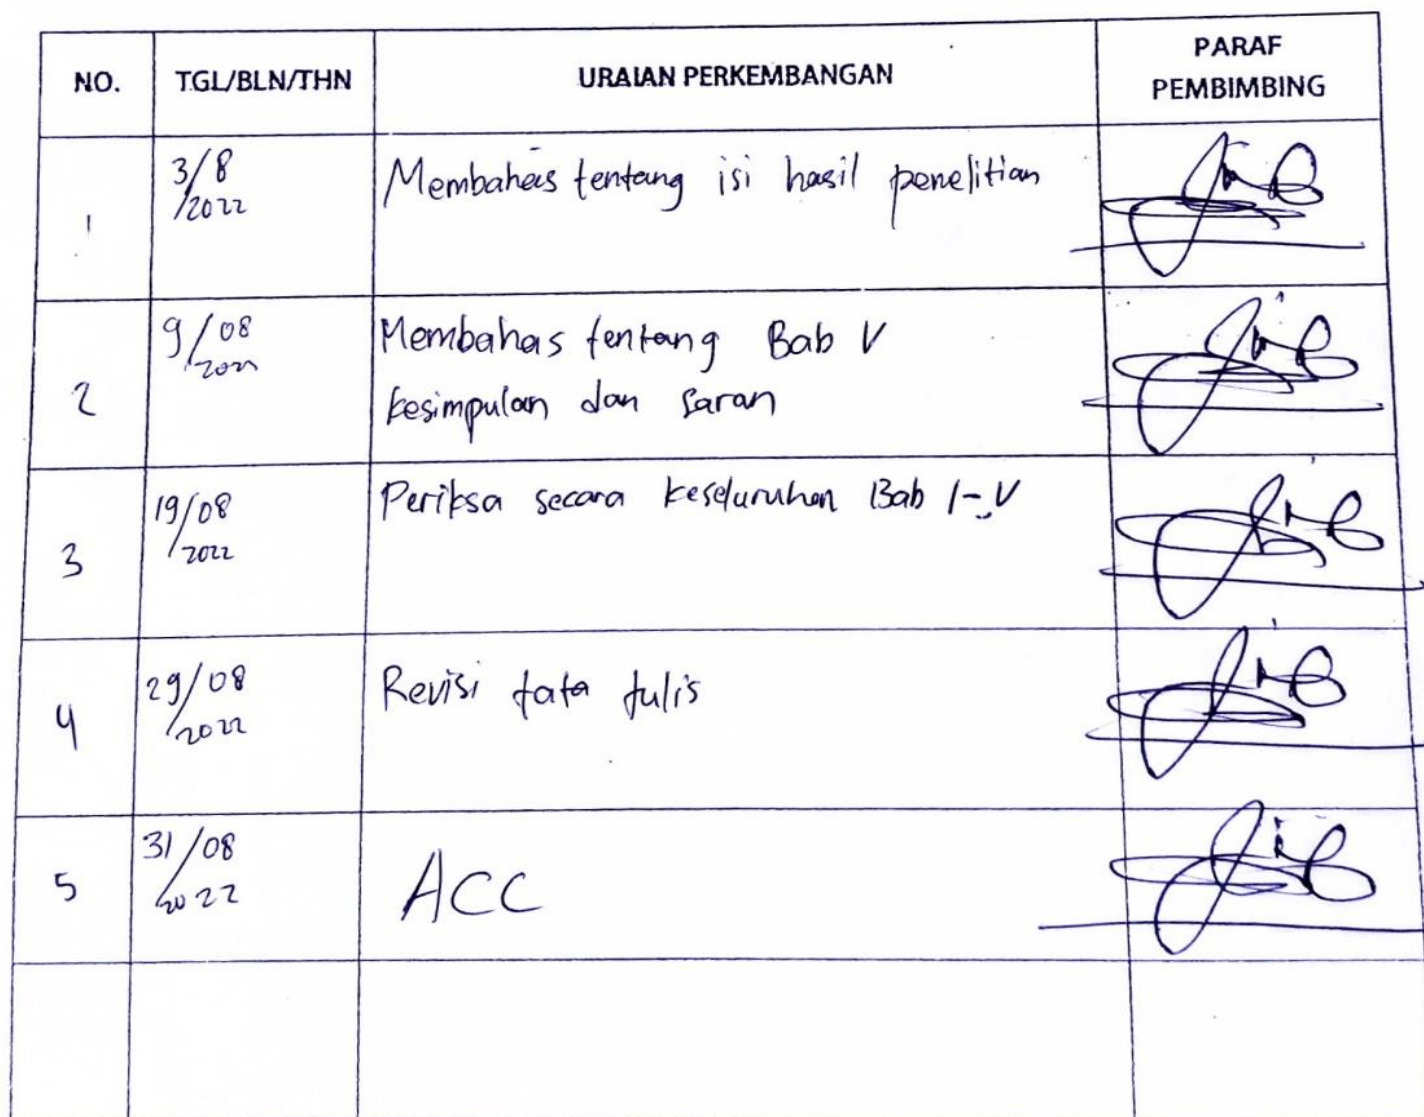 NO. TGL/BLN/THN URAIAN PERKEMBANGAN PARAF
PEMBIMBING
1 3/8 Membahas tentang isi hasil penelitian
/2022
2 9/08 Membahas tentang Bab V
kesimpulan dan saran
3 19/08 Periksa secara keseluruhan Bab I-V
/2022
4 29/08 Revisi tata tulis
/2022
5 31/08 ACC
/2022